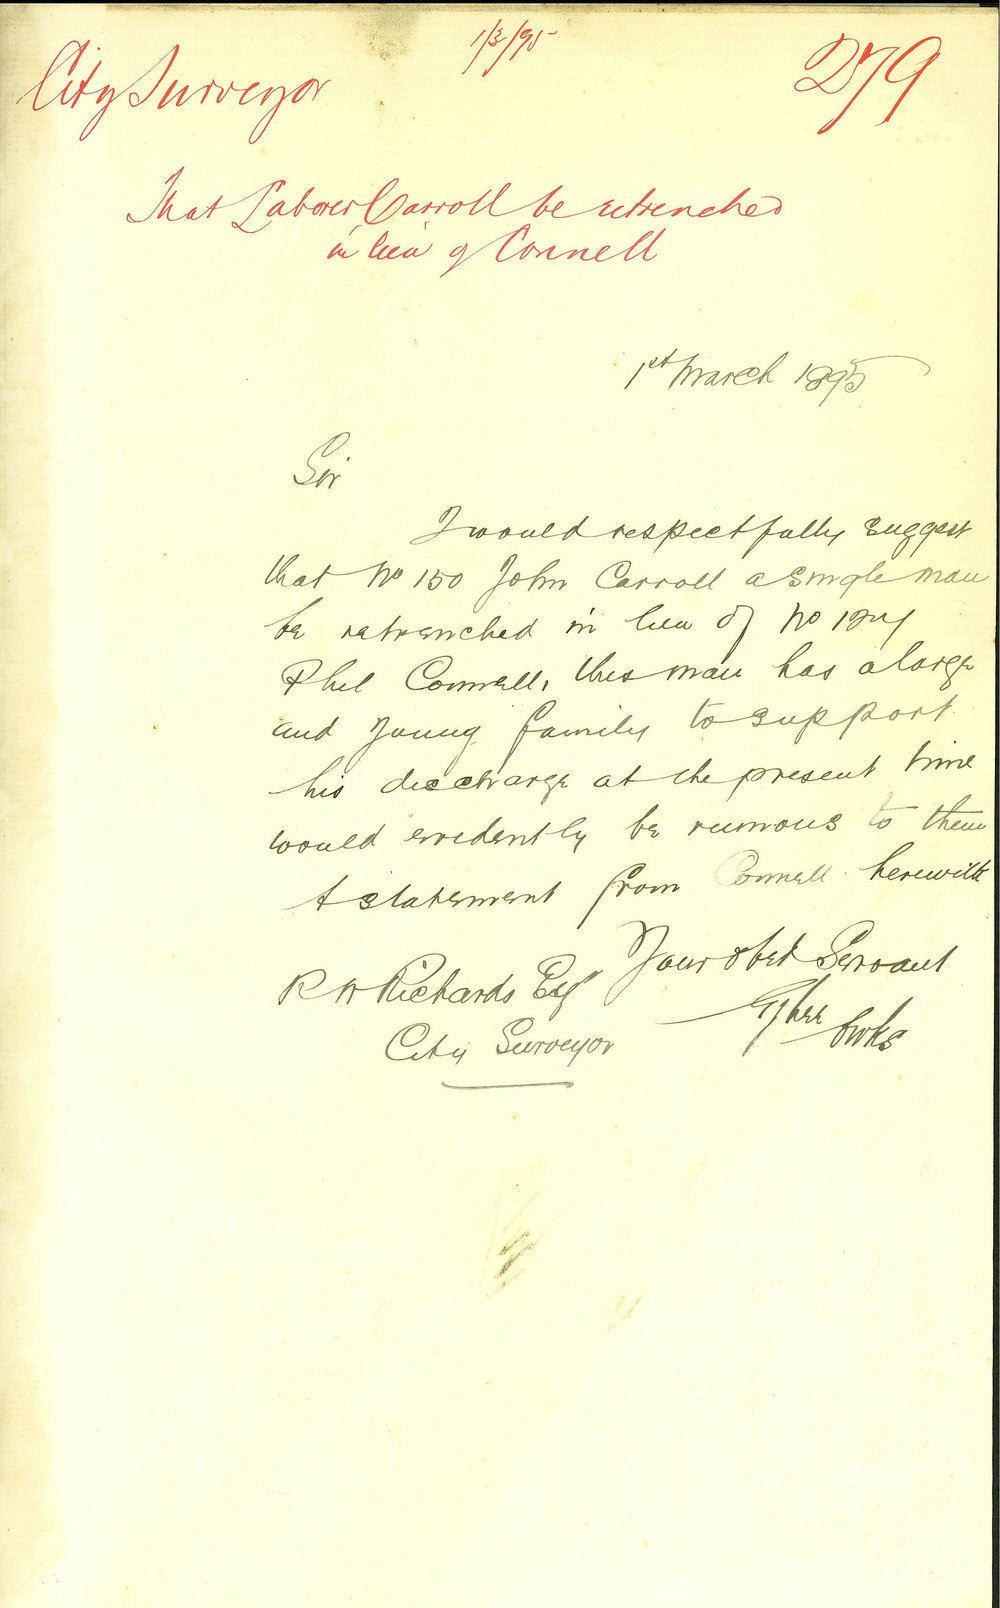 City Surveyor
1/3/95
279
That Laborer Carroll be retrenched
in lieu of Connell
1st March 1895
Sir
I would respectfully suggest
that No 150 John Carroll a single man
be retrenched in lieu of No
Phil Connell, this man has a large
and young family to support
his discharge at the present time
would evidently be ruinous to them
A statement from Connell herewith
Your obed Servant
R W Richards Esq
City Surveyor